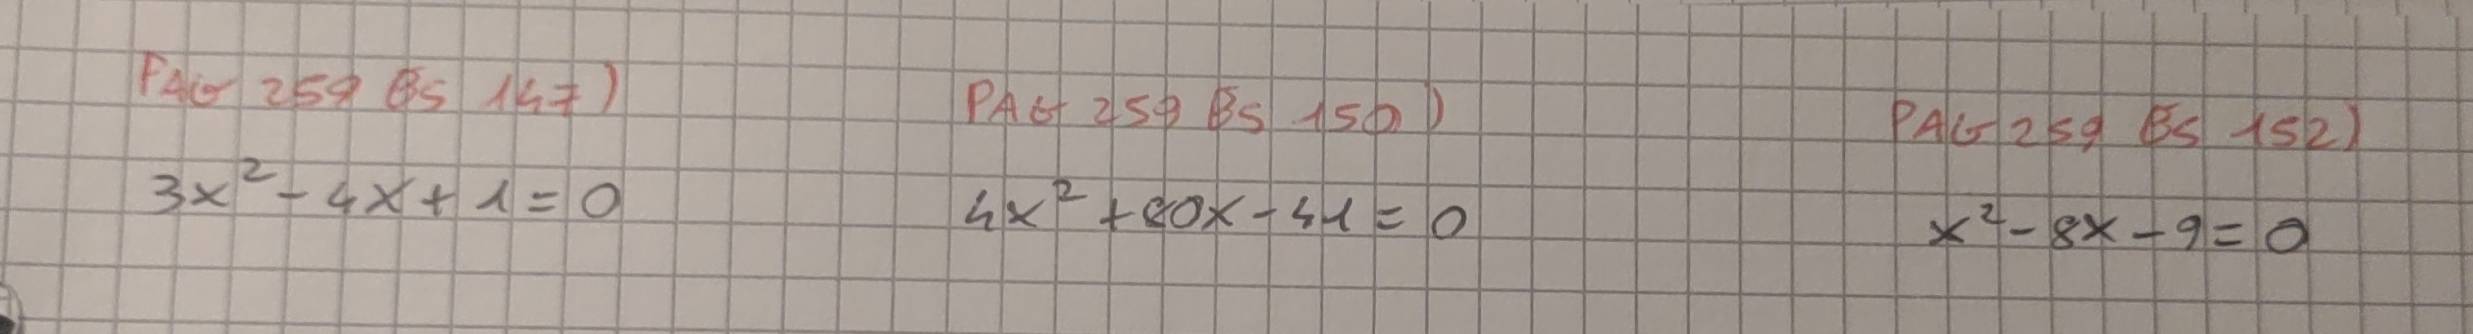 PAG 259 ES 147)
3x² - 4x + 1 = 0
PAG 259 ES 150)
4x² + 80x - 41 = 0
PAG 259 ES 152)
x² - 8x - 9 = 0